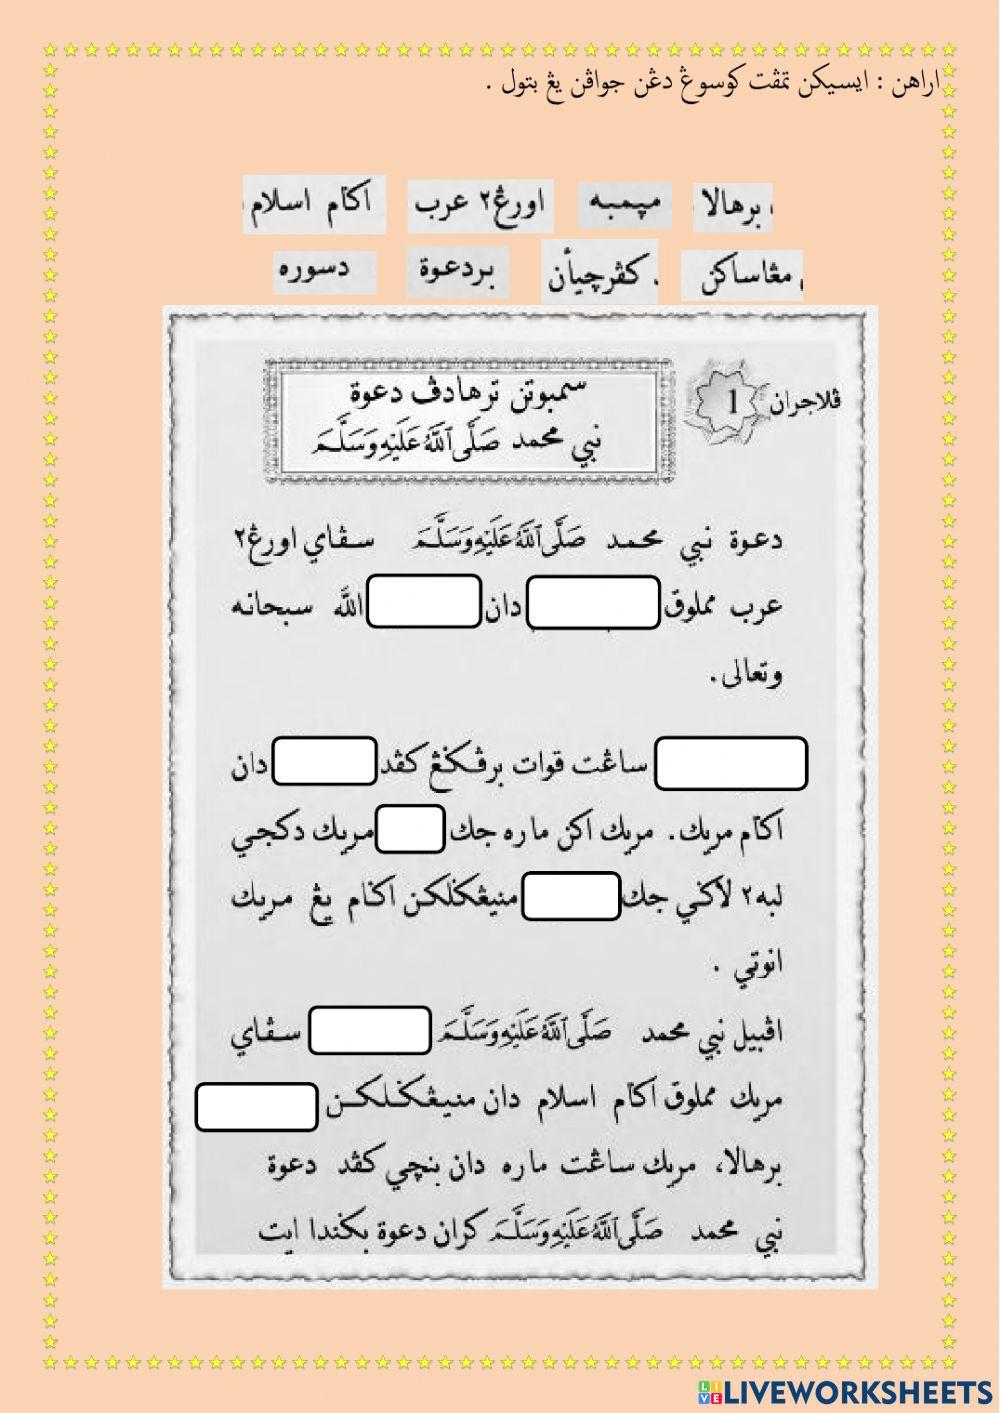 اراهن : ايسيكن تمڤت كوسوڠ دڠن جواڤن يڠ بتول .
، برهالا
مڽمبه
اورڠ٢ عرب
اݢام اسلام
، مڠاساكن
كڤرچيأن
بردعوة
دسوره
ڤلاجرن 1
سمبوتن ترهادڤ دعوة
نبي محمد صَلَّى ٱللَّهُ عَلَيْهِ وَسَلَّمَ
دعوة نبي محمد صَلَّى ٱللَّهُ عَلَيْهِ وَسَلَّمَ سڤاي اورڠ٢
عرب مملوق دان اللّٰه سبحانه
وتعالى.
ساڠت قوات برڤݢڠ كڤد دان
اݢام مريك. مريك اكن ماره جك مريك دكجي
لبه٢ لاݢي جك منيڠݢلكن اݢام يڠ مريك
انوتي .
اڤبيل نبي محمد صَلَّى ٱللَّهُ عَلَيْهِ وَسَلَّمَ سڤاي
مريك مملوق اݢام اسلام دان منيڠݢلكن
برهالا، مريك ساڠت ماره دان بنچي كڤد دعوة
نبي محمد صَلَّى ٱللَّهُ عَلَيْهِ وَسَلَّمَ كران دعوة بݢيندا ايت
LIVEWORKSHEETS